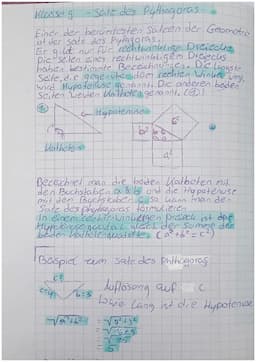 Klasse 9 - Satz des Pythagoras
Einer der berühmtesten Sätzen der Geometrie
ist der Satz des Pythagoras.
Er gilt nur für rechtwinklige Dreiecke.
Die Seiten eines rechtwinkligen Dreiecks
haben bestimmte Bezeichnungen. Die längste
Seite, die gegenüber dem rechten Winkel liegt,
wird Hypotenuse genannt. Die anderen beiden
Seiten werden Kathete genannt.
Hypotenuse
Kathete
b²
a²
Bezeichnet man die beiden Katheten mit
den Buchstaben a & b und die Hypotenuse
mit dem Buchstaben c, so kann man den
Satz des Pythagoras formulieren
In einem rechtwinkligen Dreieck ist das
gleich der Summe der
beiden (a²+b²=c²)
Beispiel zum Satz des Pythagoras
c?
b=3
Auflösung auf c
Wie lang ist die Hypotenuse
√a²+b²